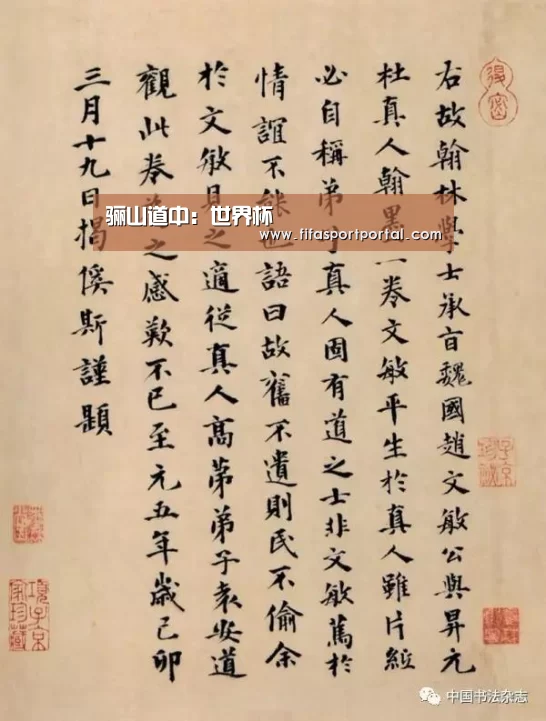 右故翰林學士承旨魏國趙文敏公與昇元
杜真人翰墨一卷文敏平生於真人雖片紙
必自稱弟子真人固有道之士非文敏篤於
情誼不能也語曰故舊不遺則民不偷余
於文敏見之適從真人高弟弟子袁安道
觀此卷為之感歎不已至元五年歲己卯
三月十九日揭傒斯謹題
項子京家珍藏
骊山道中：世界杯
www.fifasportportal.com
中国书法杂志